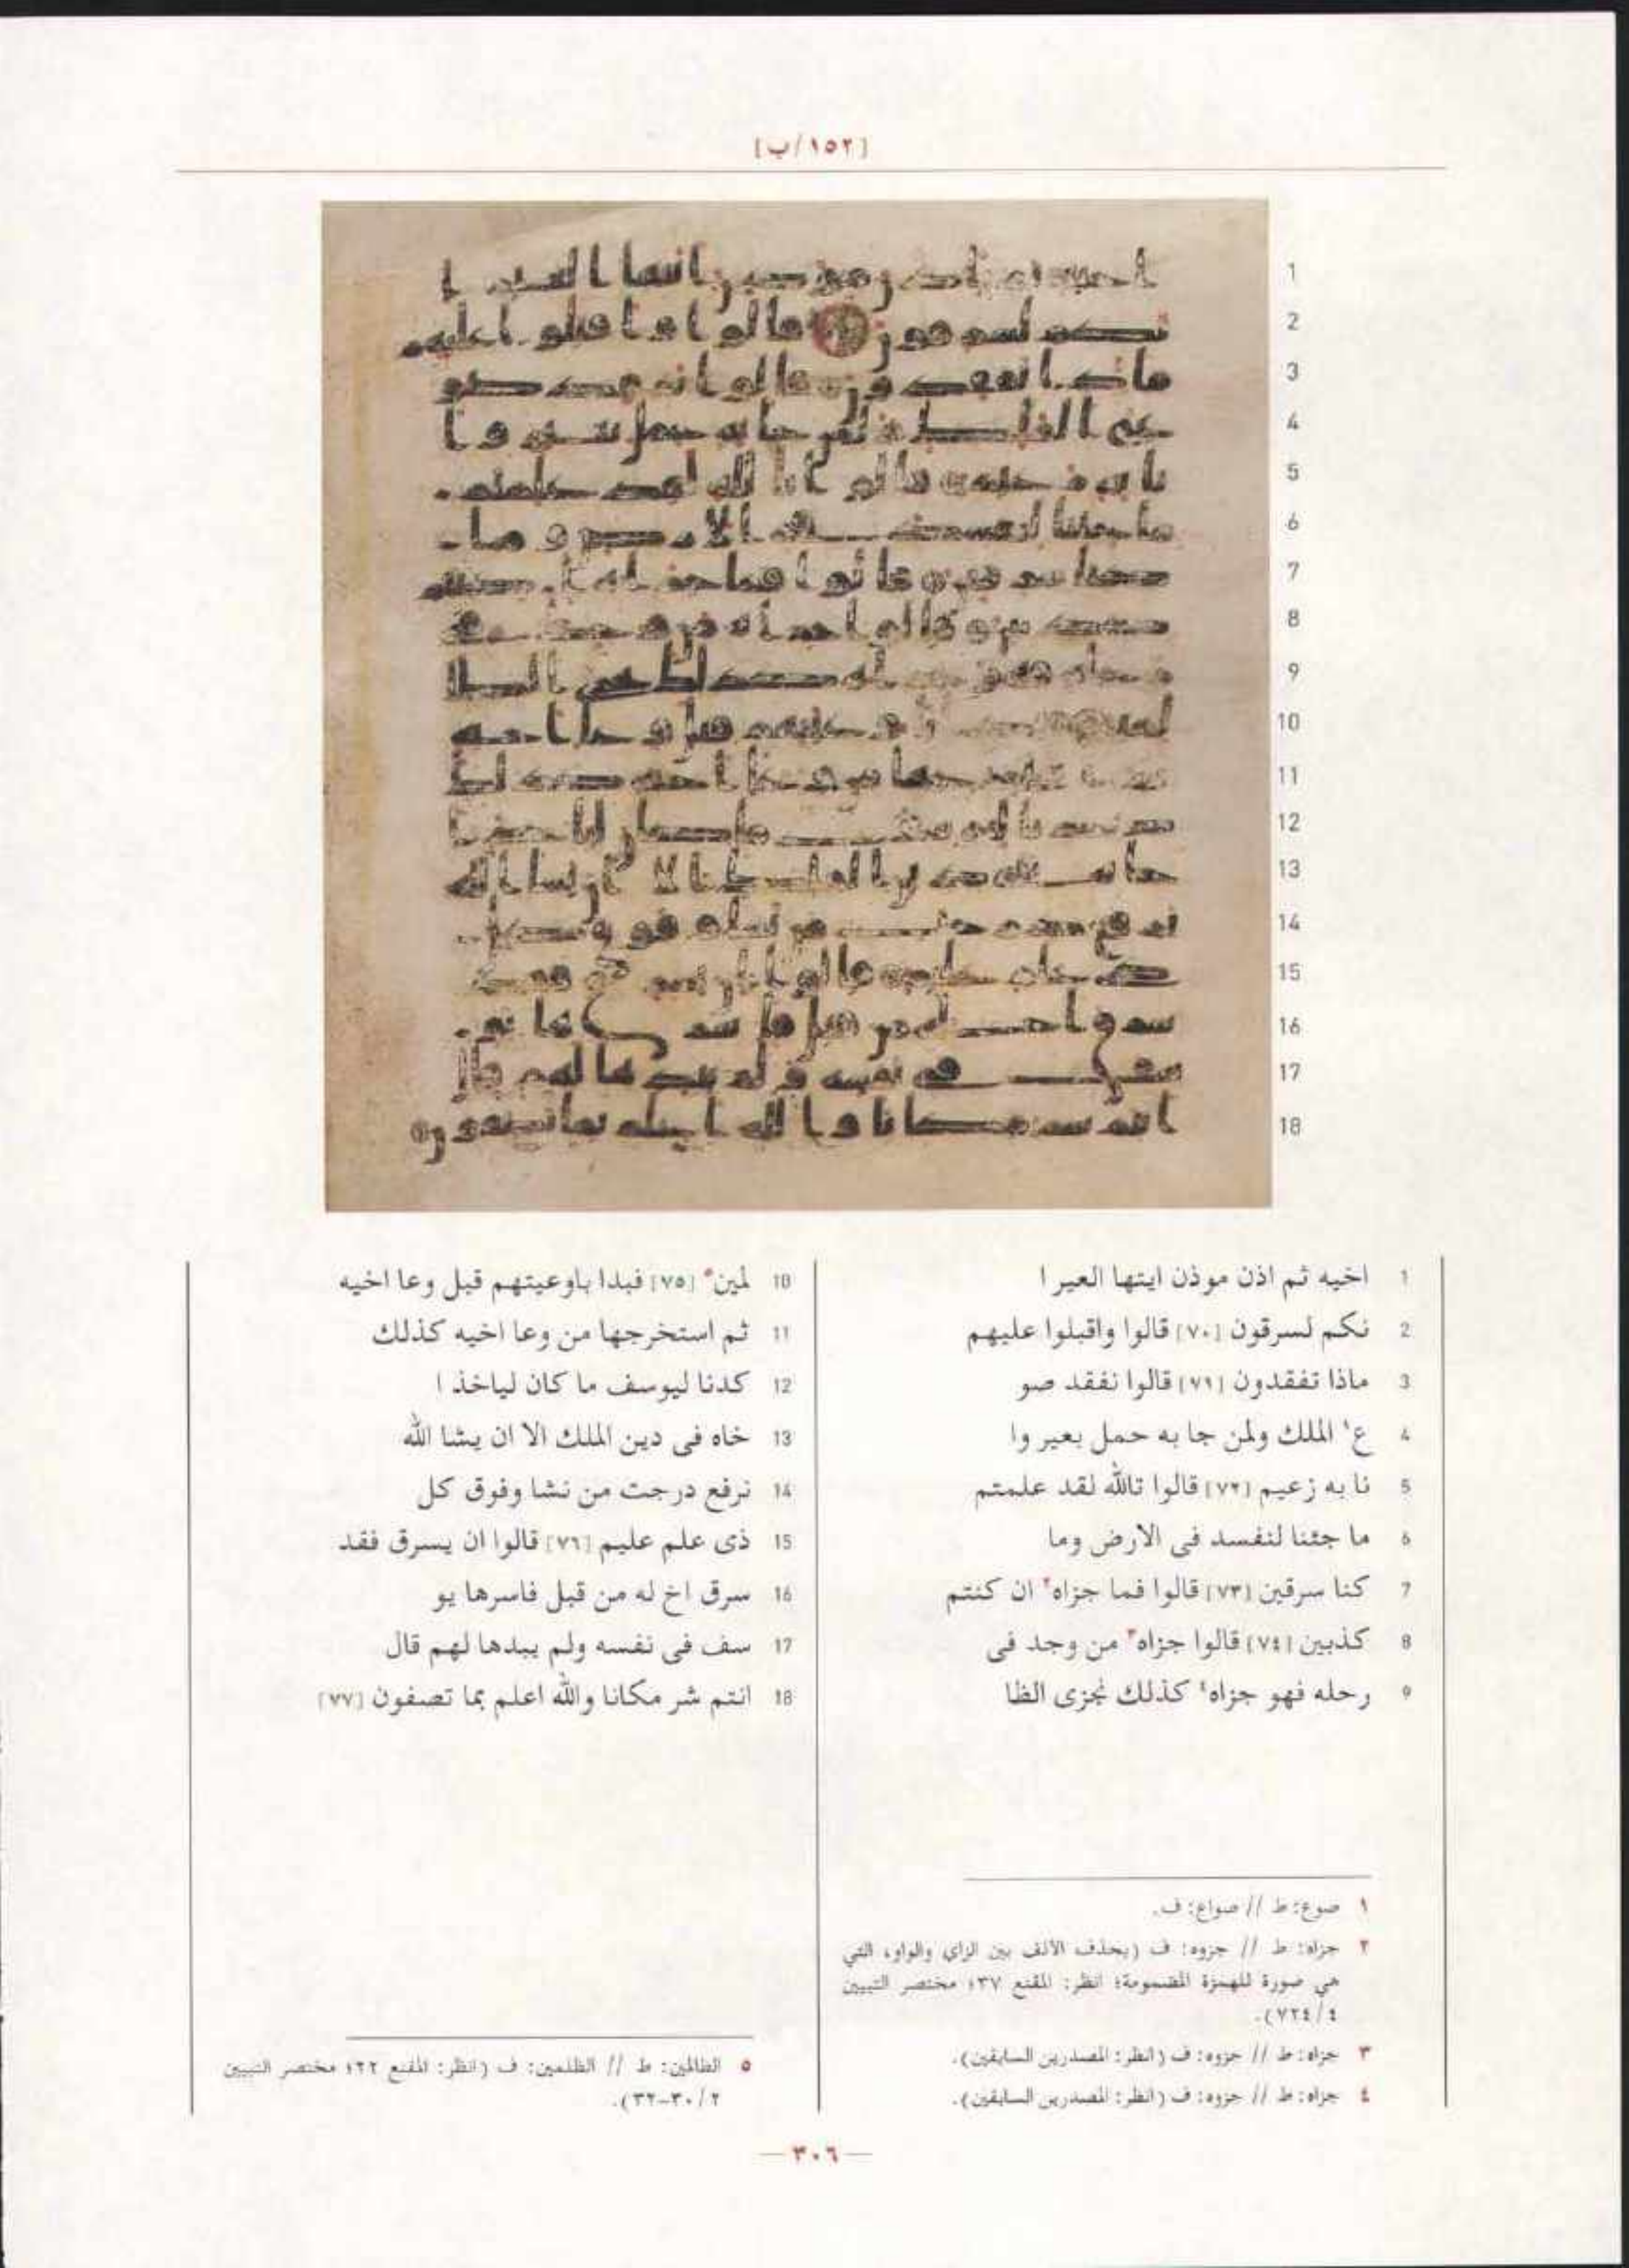 [١٥٢/ب]
1 اخيه ثم اذن موذن ايتها العير ا
2 نكم لسرقون [٧٠] قالوا واقبلوا عليهم
3 ماذا تفقدون [٧١] قالوا نفقد صو
4 ع١ الملك ولمن جا به حمل بعير وا
5 نا به زعيم [٧٢] قالوا تالله لقد علمتم
6 ما جئنا لنفسد فى الارض وما
7 كنا سرقين [٧٣] قالوا فما جزاه٢ ان كنتم
8 كذبين [٧٤] قالوا جزاه٣ من وجد فى
9 رحله فهو جزاه٤ كذلك نجزى الظا
10 لمين٥ [٧٥] فبدا باوعيتهم قبل وعا اخيه
11 ثم استخرجها من وعا اخيه كذلك
12 كدنا ليوسف ما كان لياخذ ا
13 خاه فى دين الملك الا ان يشا الله
14 نرفع درجت من نشا وفوق كل
15 ذى علم عليم [٧٦] قالوا ان يسرق فقد
16 سرق اخ له من قبل فاسرها يو
17 سف فى نفسه ولم يبدها لهم قال
18 انتم شر مكانا والله اعلم بما تصفون [٧٧]
١ صوع: ط // صواع: ف.
٢ جزاه: ط // جزوه: ف (بحذف الالف بين الزاي والواو، التي
هي صورة للهمزة المضمومة؛ انظر: المقنع ٣٧؛ مختصر التبيين
٤/٧٢٤).
٣ جزاه: ط // جزوه: ف (انظر: المصدرين السابقين).
٤ جزاه: ط // جزوه: ف (انظر: المصدرين السابقين).
٥ الظالمين: ط // الظلمين: ف (انظر: المقنع ٢٢؛ مختصر التبيين
٢/٣٠-٣٢).
— ٣٠٦ —